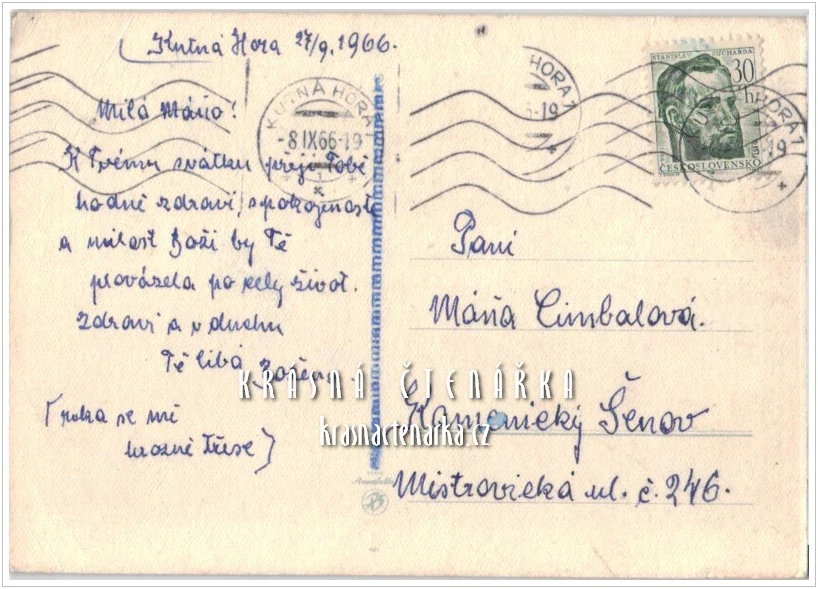 Kutná Hora 27/9. 1966.
Milá Máňo!
K Tvému svátku přeji Tobě
hodně zdraví, spokojenosti
a milost Boží by Tě
provázela po celý život.
Zdraví a v duchu
Tě líbá Božena
(ruka se mi
hrozně třese)
KUTNÁ HORA 1
-8.IX.66-19
1
HORA 1
6-19
STANISLAV SUCHARDA
30
h
ČESKOSLOVENSKO
KUTNÁ HORA 1
-19
Paní
Máňa Cimbalová.
Kamenický Šenov
Mistrovická ul. č. 246.
KRÁSNÁ ČTENÁŘKA
krasnactenarka.cz